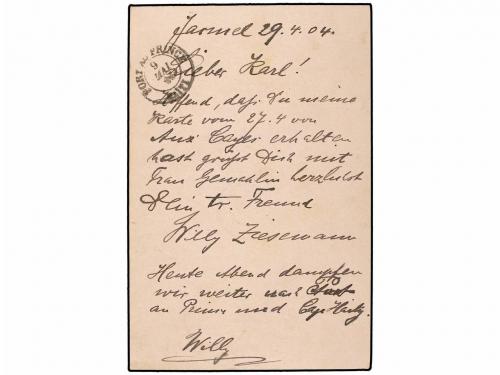 Jacmel 29.4.04.
PORT AU PRINCE
9
MAI
HAITI
Lieber Karl!
Hoffend, daß Du meine
Karte vom 27.4 von
Aux Cayes erhalten
hast grüßt Dich mit
Frau Gemahlin herzlichst
Dein tr. Freund
Willy Ziesemann
Heute Abend dampfen
wir weiter nach Port
au Prince und Cap Haity.
Willy